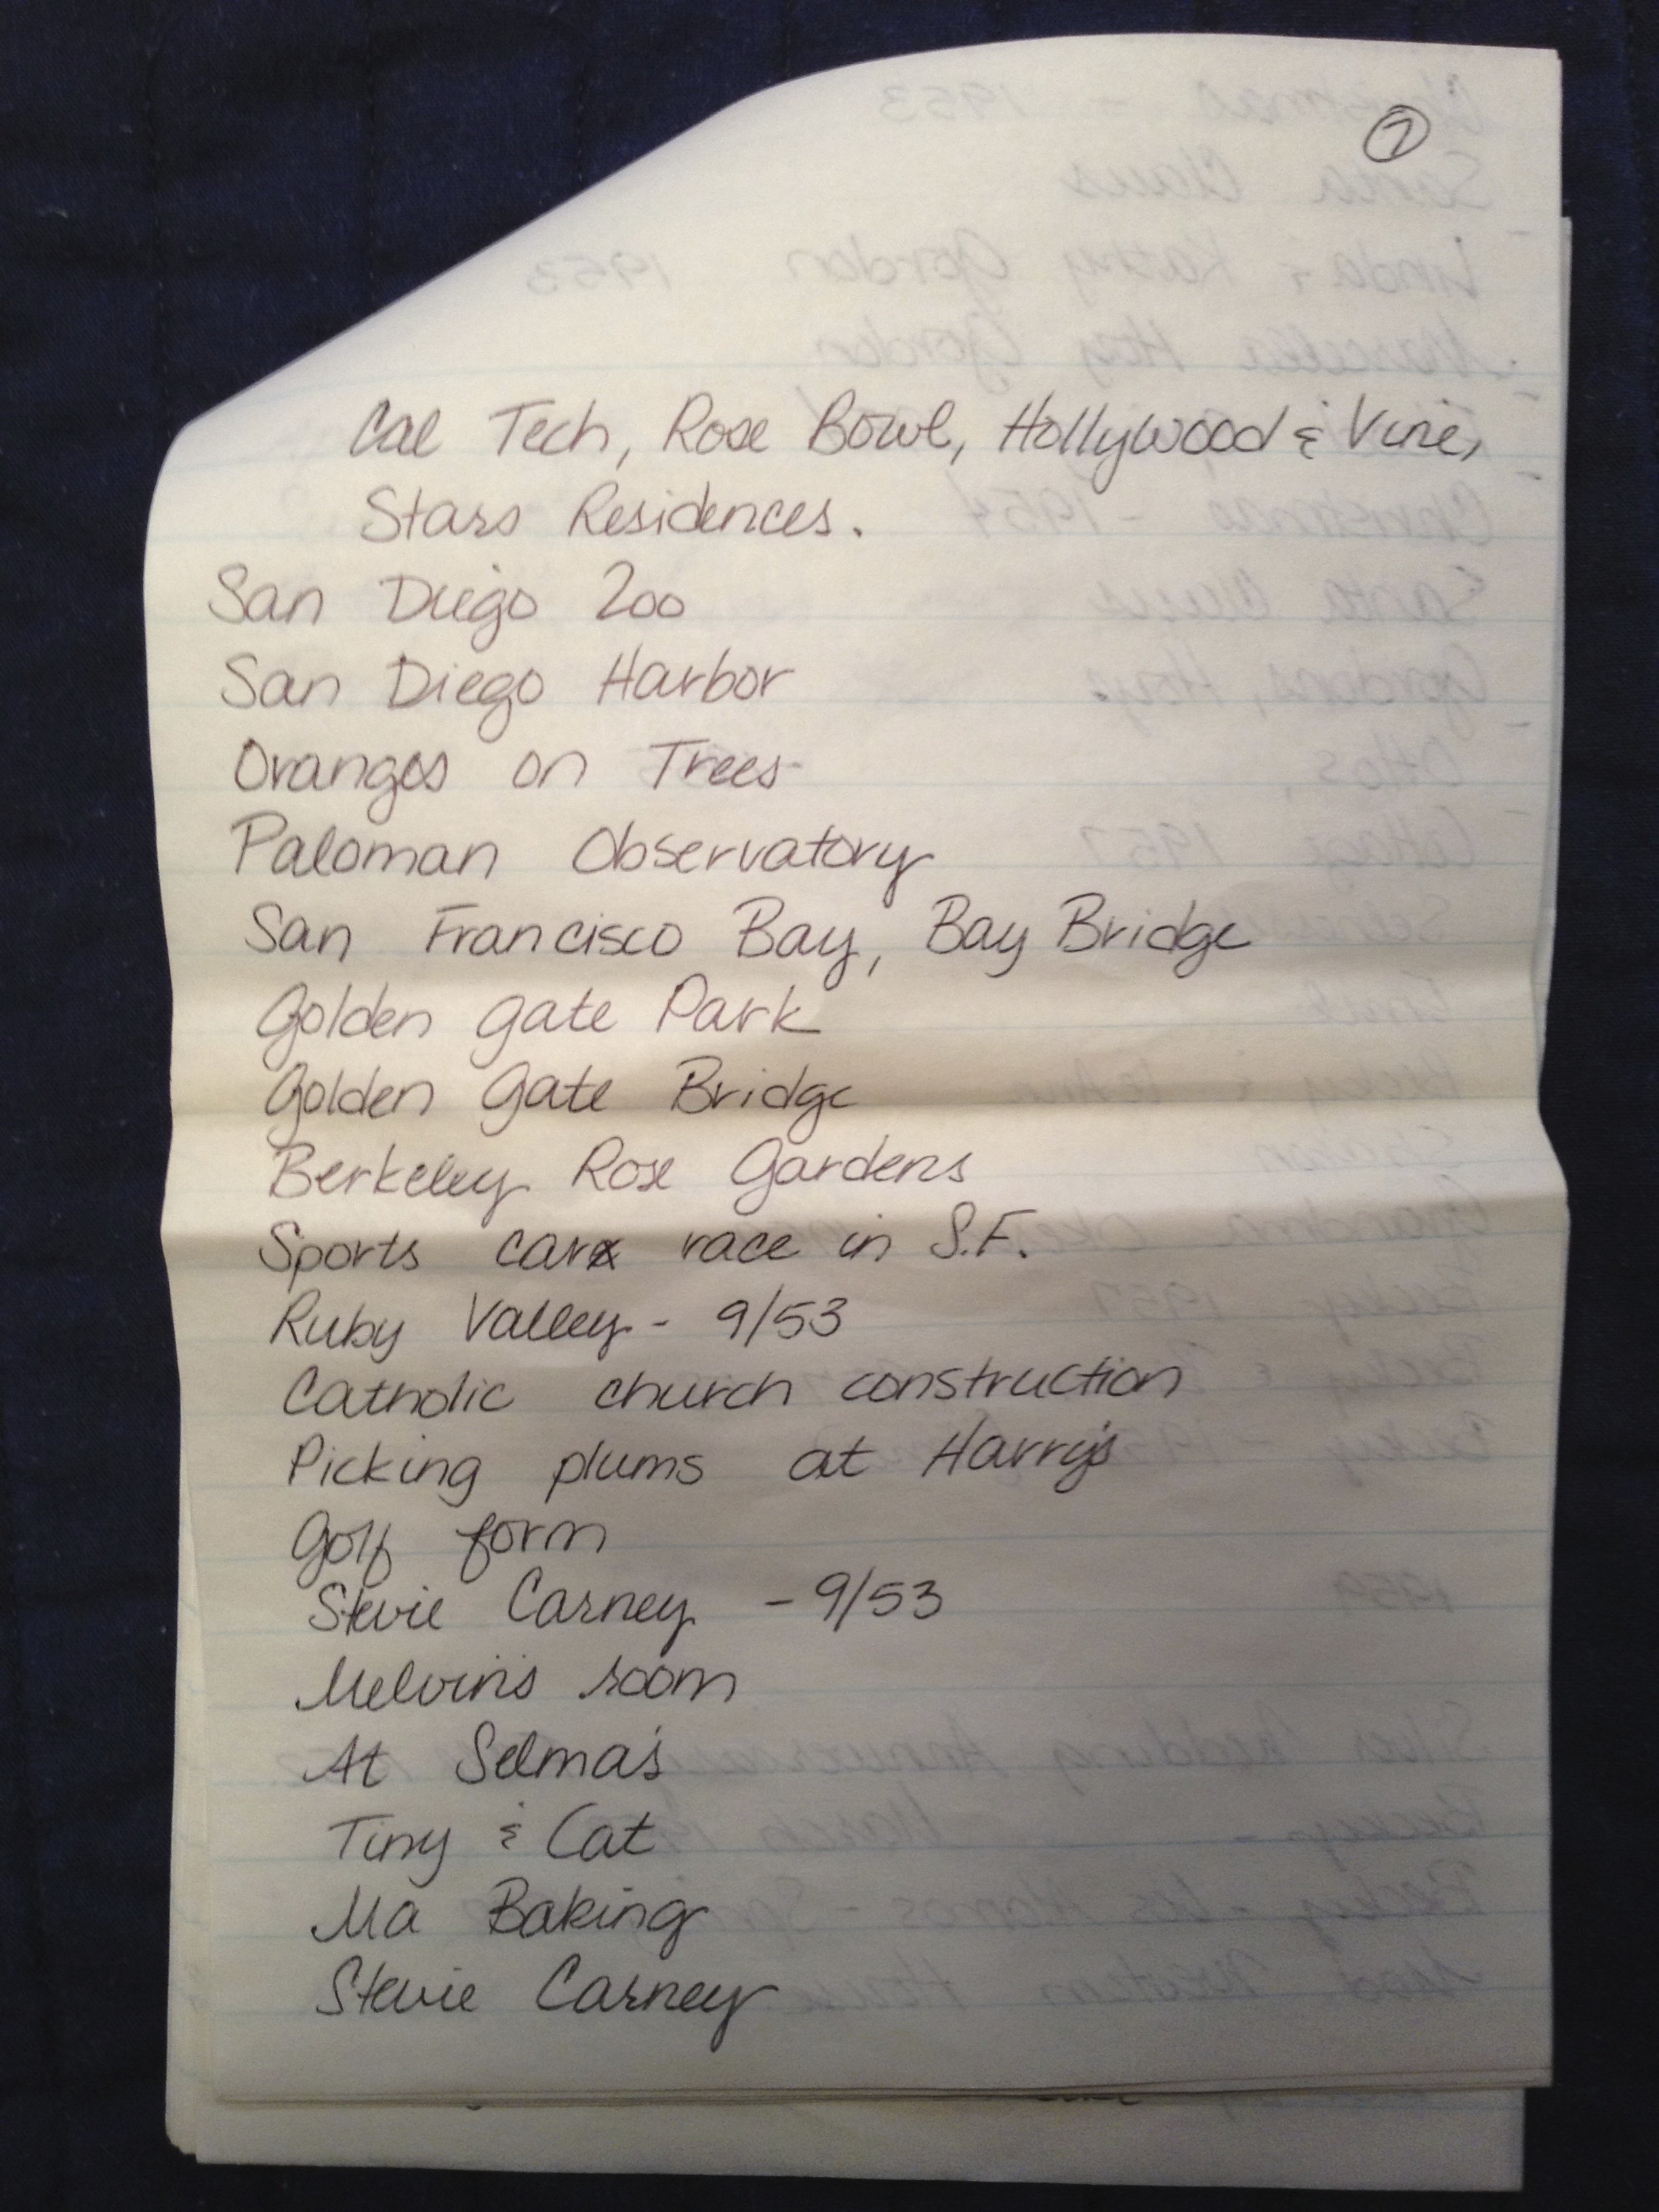 7
Cal Tech, Rose Bowl, Hollywood & Vine,
Stars Residences.
San Diego Zoo
San Diego Harbor
Oranges on Trees
Paloman Observatory
San Francisco Bay, Bay Bridge
Golden Gate Park
Golden Gate Bridge
Berkeley Rose Gardens
Sports car race in S.F.
Ruby Valley - 9/53
Catholic church construction
Picking plums at Harry's
Golf form
Stevie Carney - 9/53
Melvin's room
At Selma's
Tiny & Cat
Ma Baking
Stevie Carney